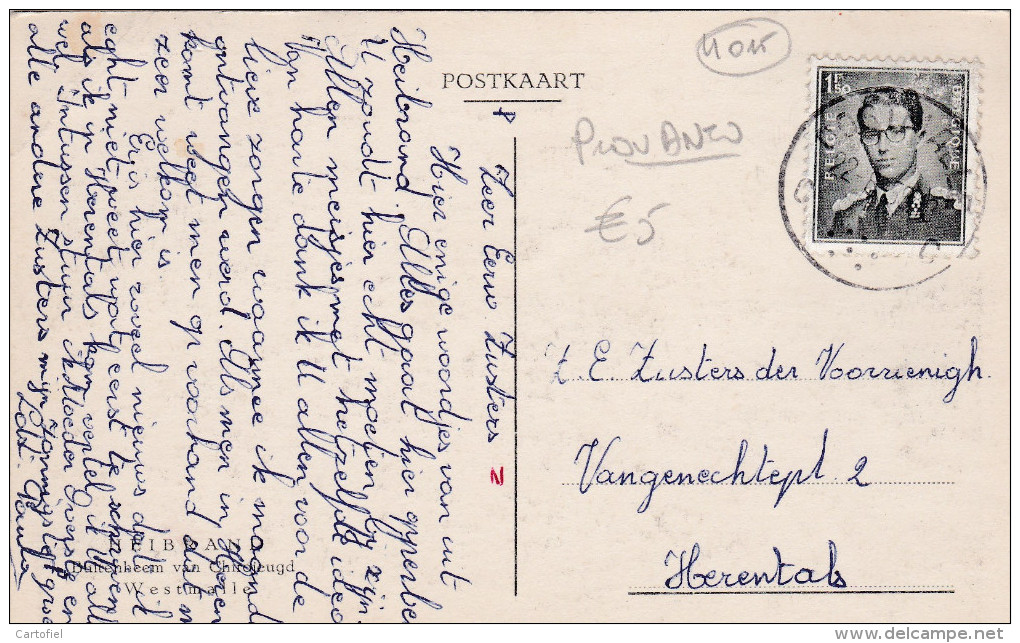 POSTKAART
11015
PROVANCO
€5
1F50
BELGIE
BELGIQUE
Zeer Eerw Zusters
Hier enige woordjes van uit
Heibrand. Alles gaat hier opperbe
U zoudt hier echt moeten bij zijn.
Allen meisjes met hetzelfde idea
Van harte dank ik U allen voor de
lieve zorgen waarmee ik
ontvangen werd. Als men in Heren
komt weet men op voorhand dat m
zeer welkom is
Er is hier zoveel nieuws dat ik
echt niet weet wat eerst te schrijven
als ik in Herentals kom vertel ik U alle
wel. Intussen stuur ik Moeder Overste en
alle andere Zusters mijn groe
Z. E. Zusters der Voorzienigh.
Vangenechtepl. 2
Herentals
HEIBRAND
Buitenheem van Chirojeugd
Westmalle
© Cartofiel
www.delcampe.net